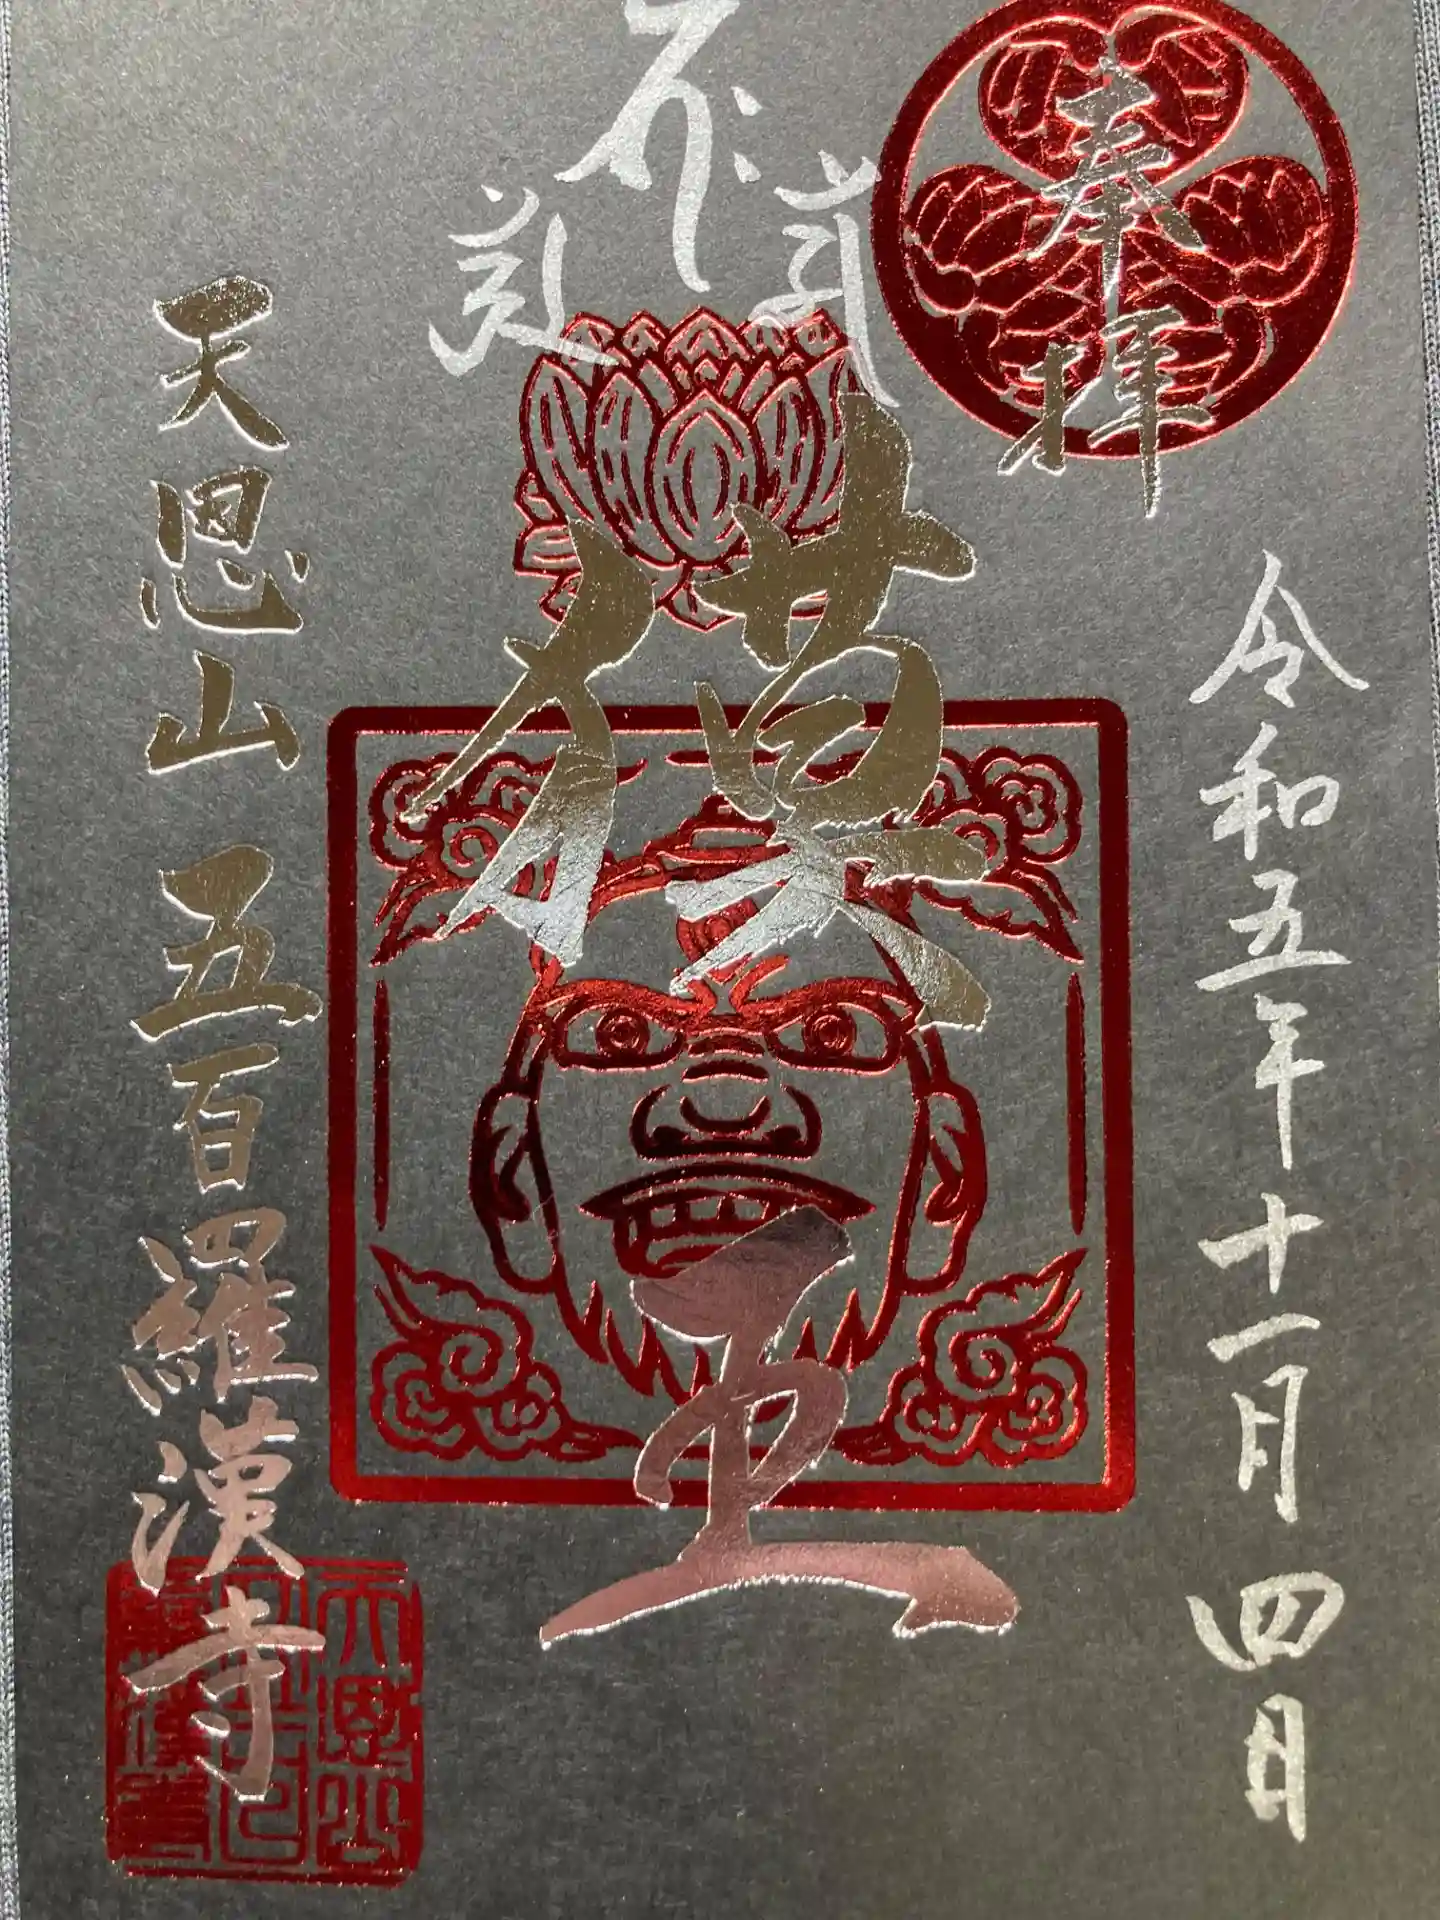 奉拝
令和五年十一月四日
獏王
天恩山 五百羅漢寺